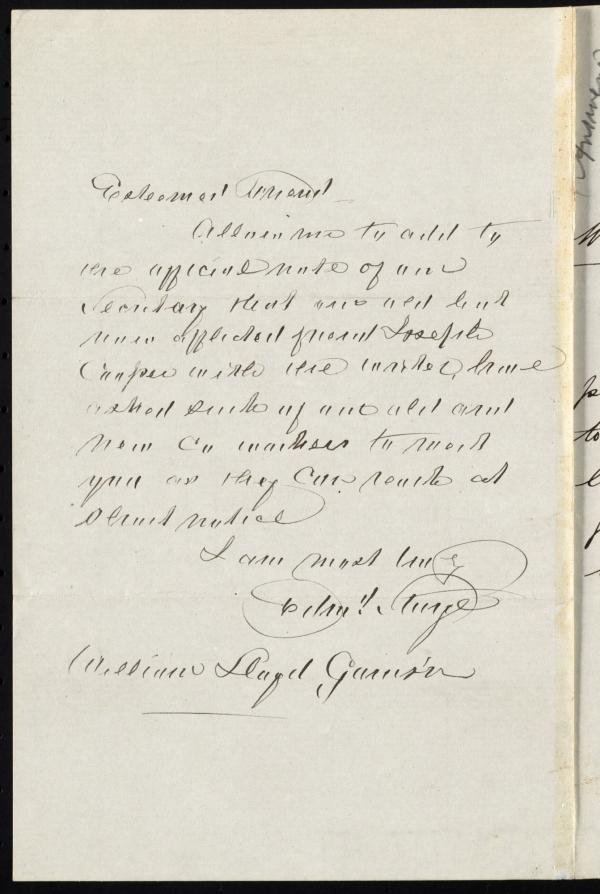 Esteemed Friend
Allow me to add to
the official note of our
Secretary that our old but
now afflicted friend Joseph
Cooper with the writer have
asked such of our old and
new co workers to meet
you as they can reach at
short notice
I am most truly
Edmd. Sturge
William Lloyd Garrison